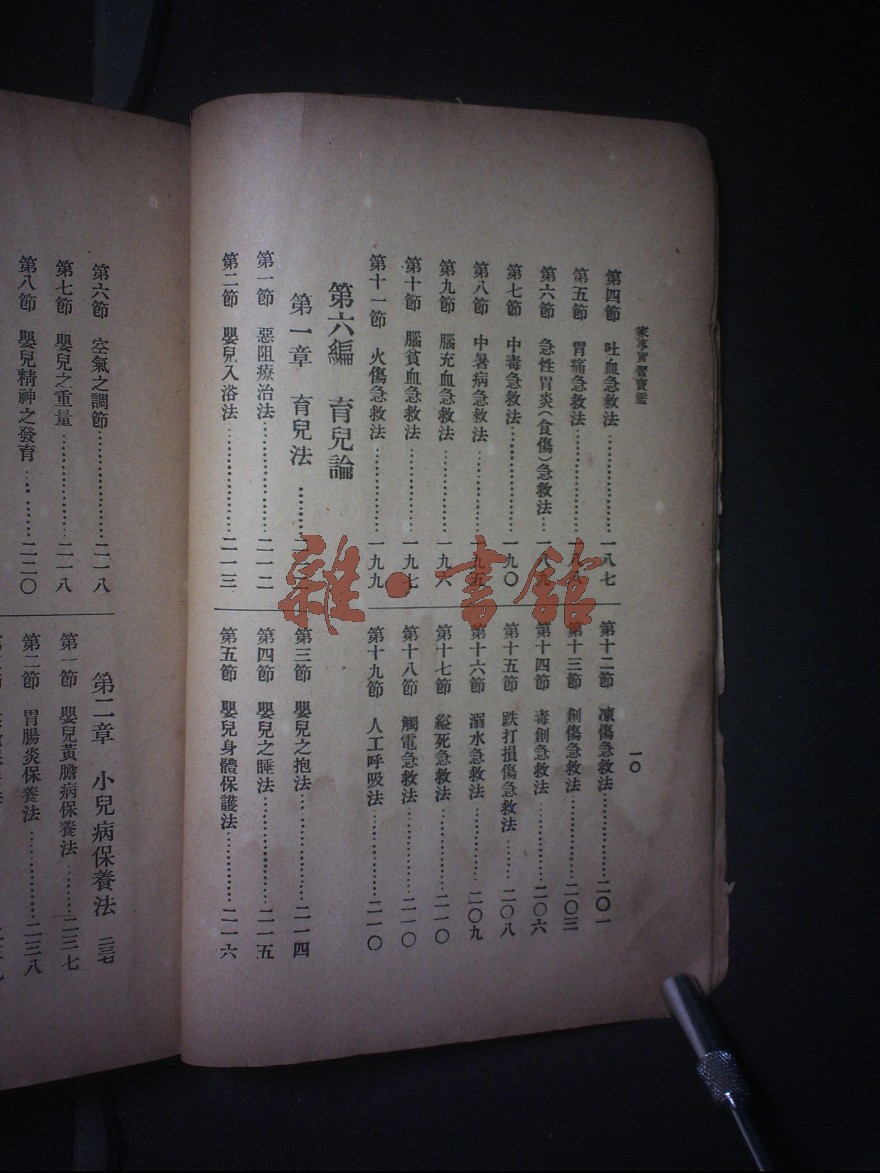 家事實習寶鑑
一〇
第四節 吐血急救法……………一八七
第五節 胃痛急救法……………一八八
第六節 急性胃炎(食傷)急救法…一八九
第七節 中毒急救法……………一九〇
第八節 中暑病急救法…………一九五
第九節 腦充血急救法…………一九六
第十節 腦貧血急救法…………一九七
第十一節 火傷急救法…………一九九
第十二節 凍傷急救法…………二〇一
第十三節 創傷急救法…………二〇三
第十四節 毒創急救法…………二〇六
第十五節 跌打損傷急救法……二〇八
第十六節 溺水急救法…………二〇九
第十七節 縊死急救法…………二一〇
第十八節 觸電急救法…………二一〇
第十九節 人工呼吸法…………二一〇
第六編 育兒論
第一章 育兒法………
第一節 惡阻療治法……………二一二
第二節 嬰兒入浴法……………二一三
第三節 嬰兒之抱法……………二一四
第四節 嬰兒之睡法……………二一五
第五節 嬰兒身體保護法………二一六
第六節 空氣之調節……………二一八
第七節 嬰兒之重量……………二一八
第八節 嬰兒精神之發育………二二〇
第二章 小兒病保養法 二三七
第一節 嬰兒黃膽病保養法……二三七
第二節 胃腸炎保養法…………二三八
雜·書館